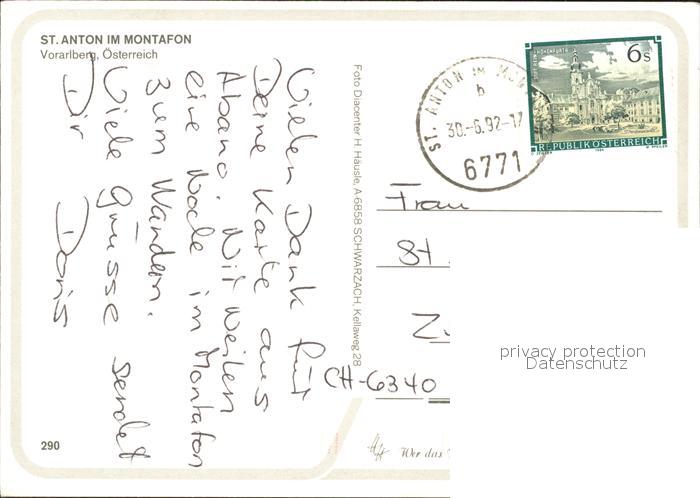 ST. ANTON IM MONTAFON
Vorarlberg, Österreich
Vielen Dank für
Deine Karte aus
Abano. Wir weilen
eine Woche im Montafon
zum Wandern.
Viele Grüsse sendet
Dir Doris
290
Foto Diacenter H. Häusle, A-6858 SCHWARZACH, Kellaweg 28
ST. ANTON IM MON
b
30.-6.92-17
6771
6s
REPUBLIK ÖSTERREICH
Frau
St.
Z
CH-6340
Wer das
privacy protection
Datenschutz